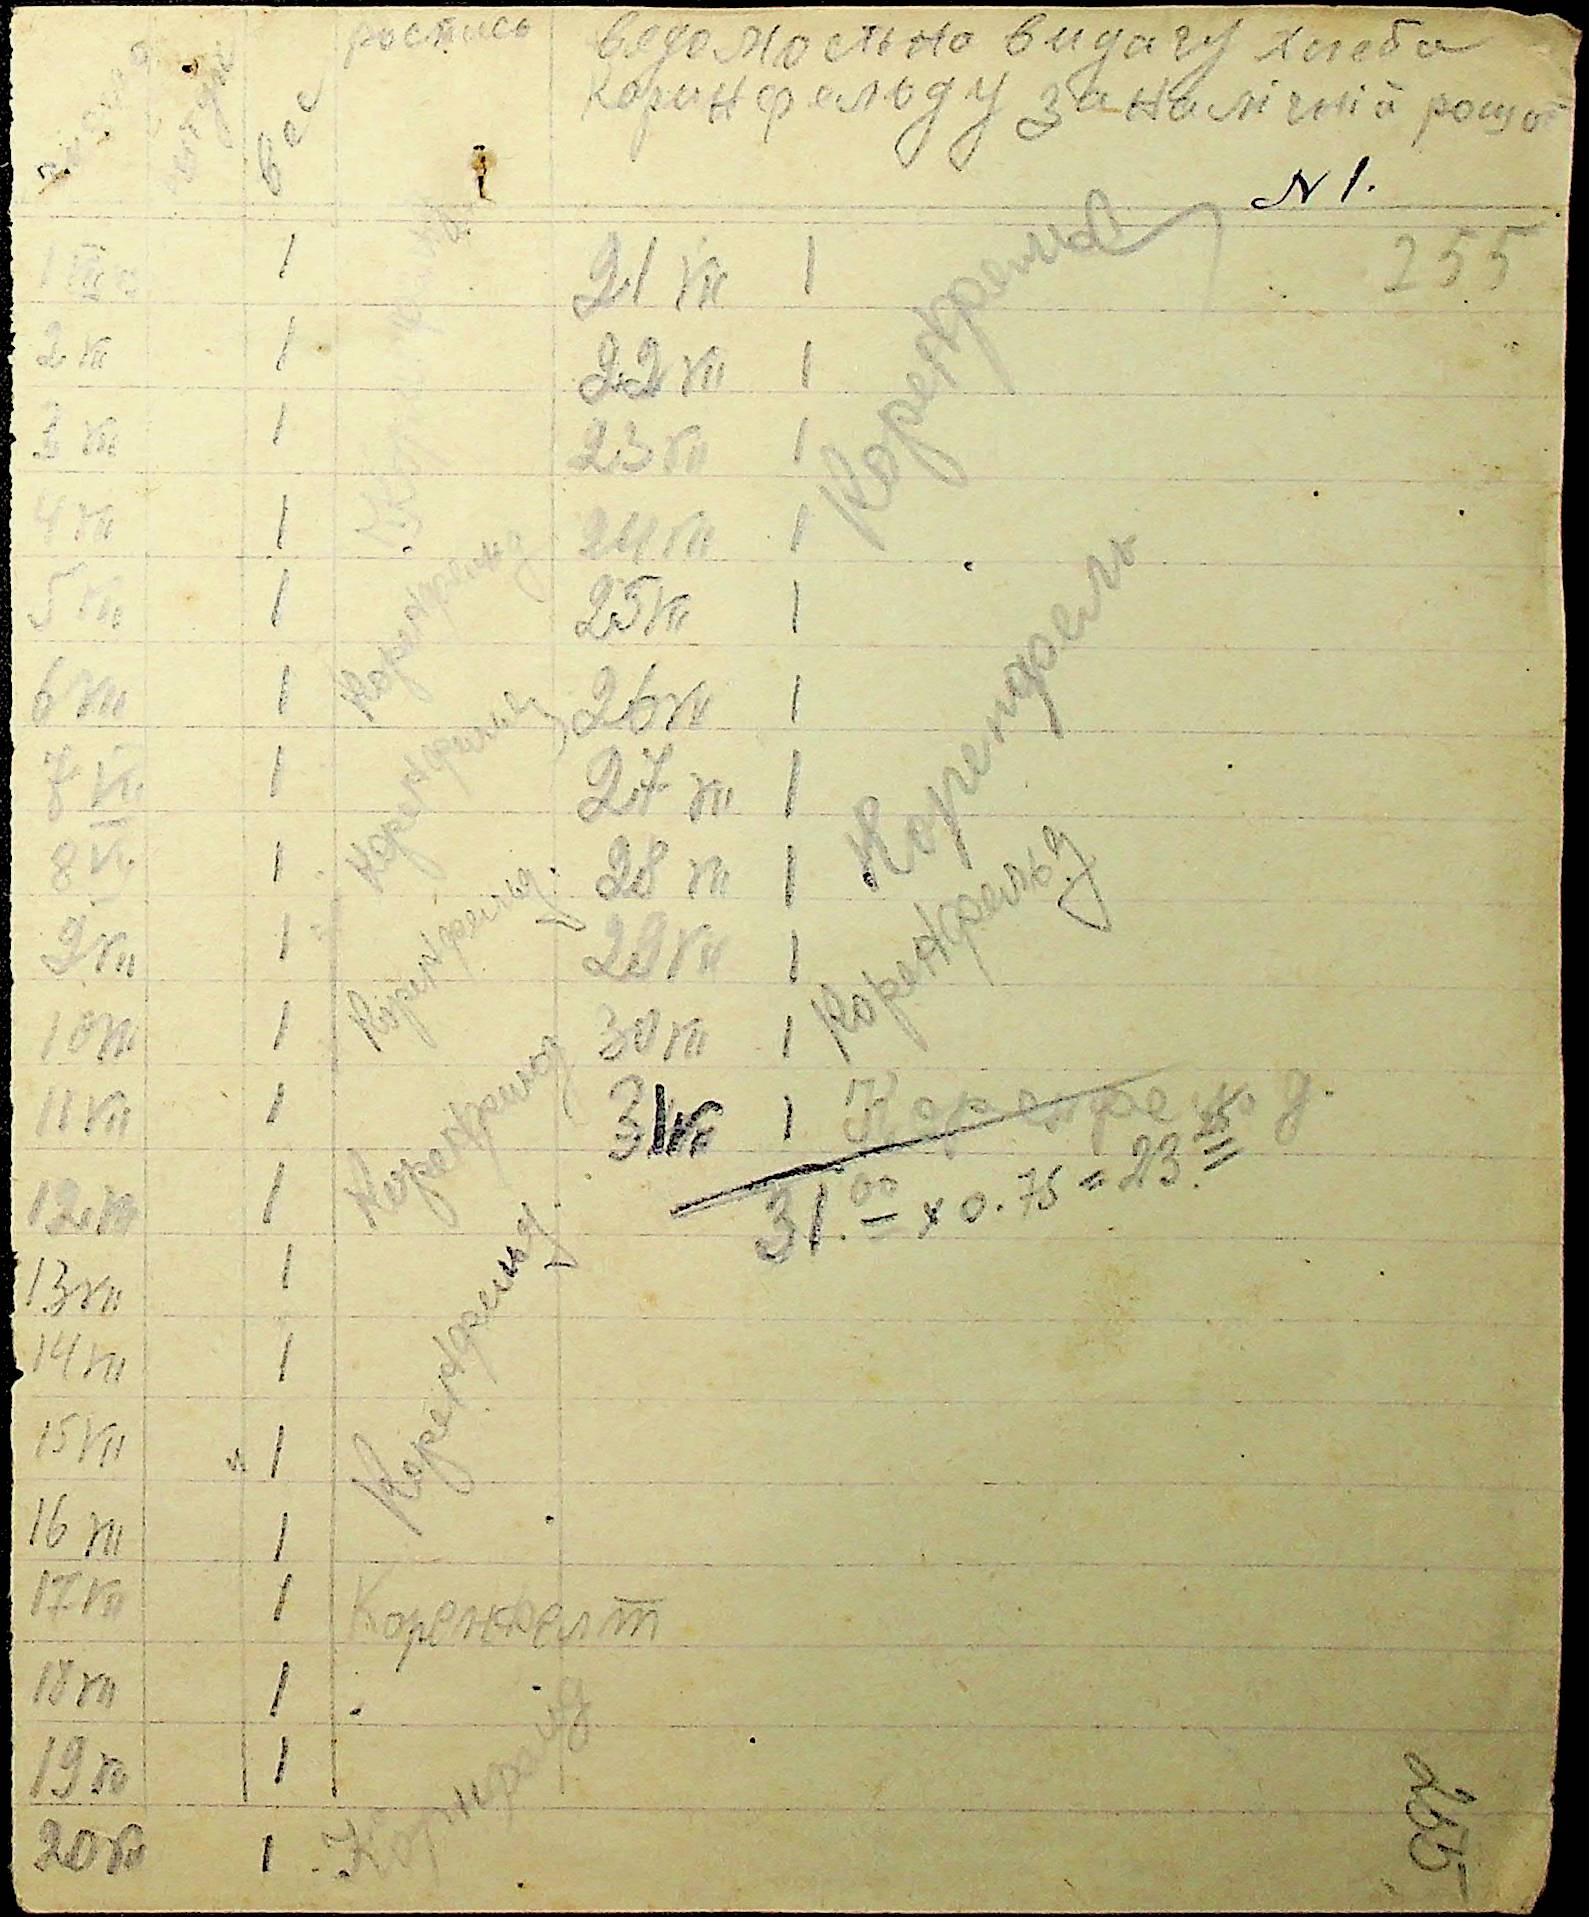 вес
роспись
ведомость на видачу хлеба
Коринфельду за налічній рощот
N 1.
255
1 VII 1
2 VII 1
3 VII 1
4 VII 1
5 VII 1
6 VII 1
Коренфельд
7 VII 1
8 VII 1
Коренфельд
9 VII 1
10 VII 1
Коренфельд.
11 VII 1
12 VII 1
Коренфельд
13 VII 1
14 VII 1
15 VII 1
16 VII 1
Коренфельд.
17 VII 1 Коренфелт
18 VII 1
19 VII 1
20 VII 1
21 VII 1
22 VII 1
23 VII 1
24 VII 1
Коренфельд
25 VII 1
26 VII 1
27 VII 1
28 VII 1
Коренфель
29 VII 1
30 VII 1
Коренфельд
31 VII 1 Коренфельд.
31.00 x 0.75 = 23.25
255